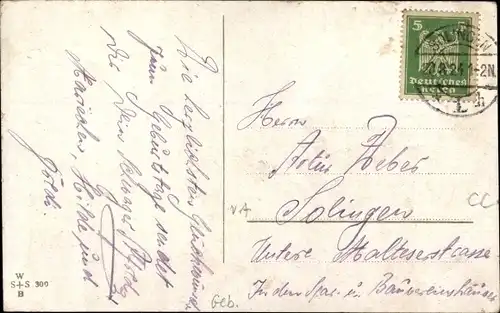 Die herzlichsten Glückwünsche
zum Geburtstage sendet
Dir Dein Schwager
Mariechen, Hilde und
5 5
Deutsches
Reich
Herrn
Artur Weber
Solingen
Untere Malteserstrasse
In den Spar- u. Bauvereinshäuser
VA
CC
Geb.
W
S+S 300
B